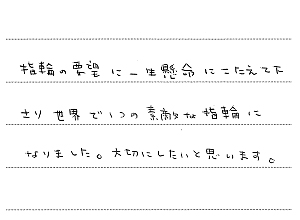 指輪の要望に一生懸命にこたえて下
さり世界で1つの素敵な指輪に
なりました。大切にしたいと思います。